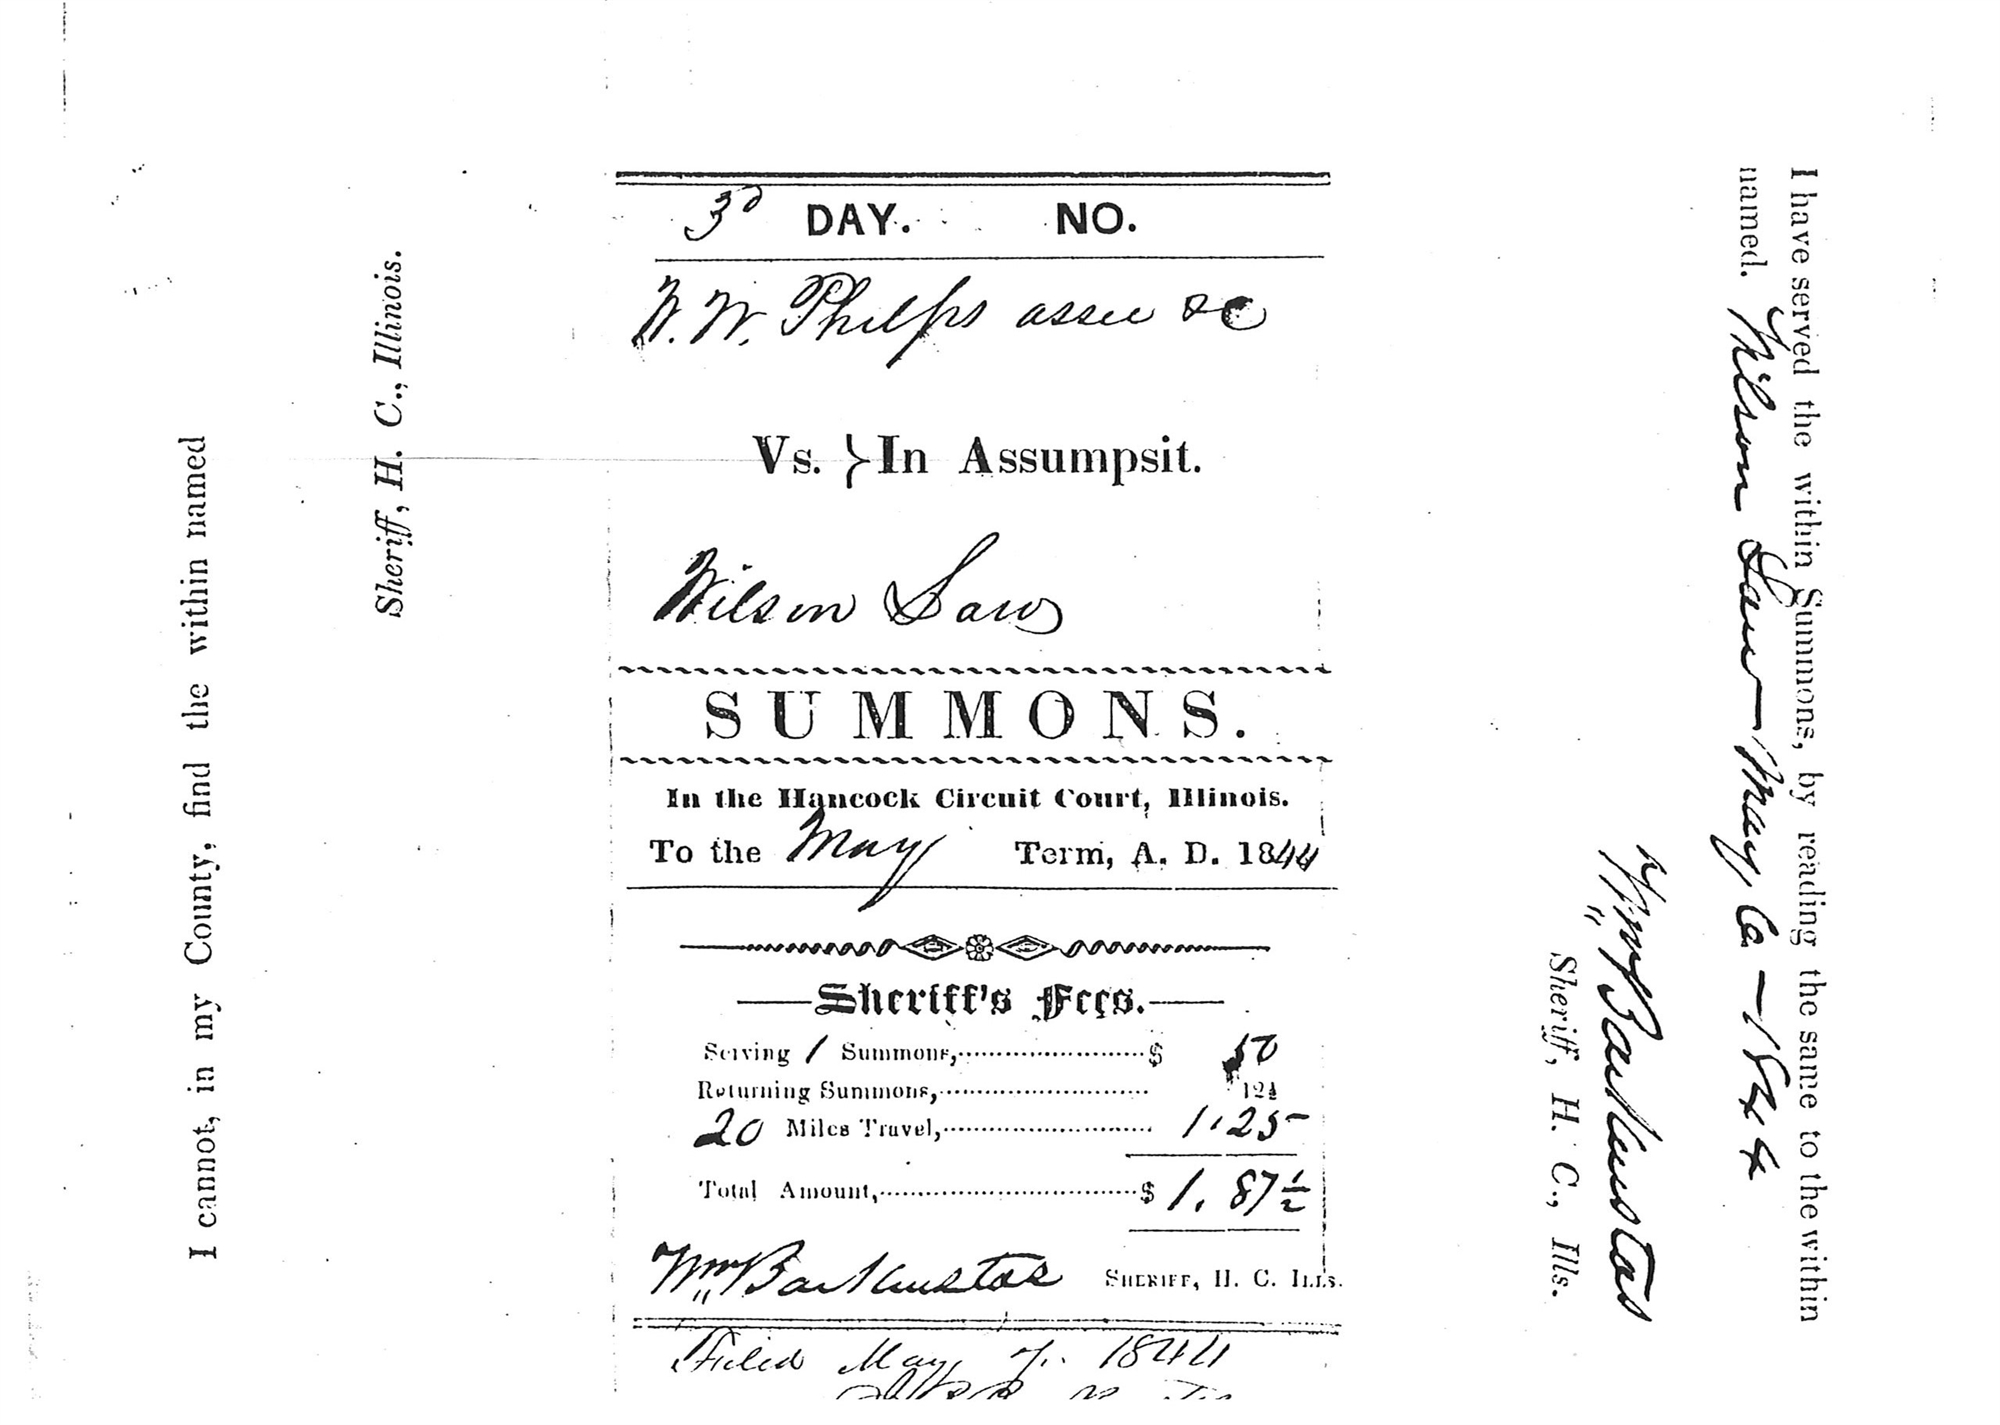 I cannot, in my County, find the within named
Sheriff, H. C., Illinois.
3d DAY. NO.
W. W. Phelps assee &c
Vs. } In Assumpsit.
Wilson Law
SUMMONS.
In the Hancock Circuit Court, Illinois.
To the May Term, A. D. 1844
Sheriff's Fees.
Serving 1 Summons, $ 50
Returning Summons, 12½
20 Miles Travel, 1.25
Total Amount, $ 1.87½
Wm Backenstos SHERIFF, H. C. ILLS.
Filed May 7. 1844
I have served the within Summons, by reading the same to the within
named. Wilson Law — May 6 — 1844
Wm Backenstos
Sheriff, H. C., Ills.